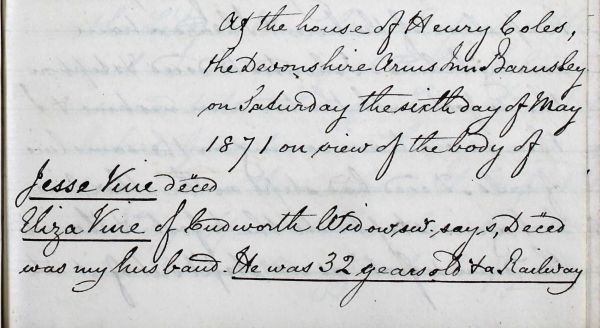 At the house of Henry Coles,
the Devonshire Arms Inn Barnsley
on Saturday the sixth day of May
1871 on view of the body of
Jesse Vine dëced
Eliza Vine of Cudworth Widow, sw. says, Dëced
was my husband. He was 32 years old & a Railway